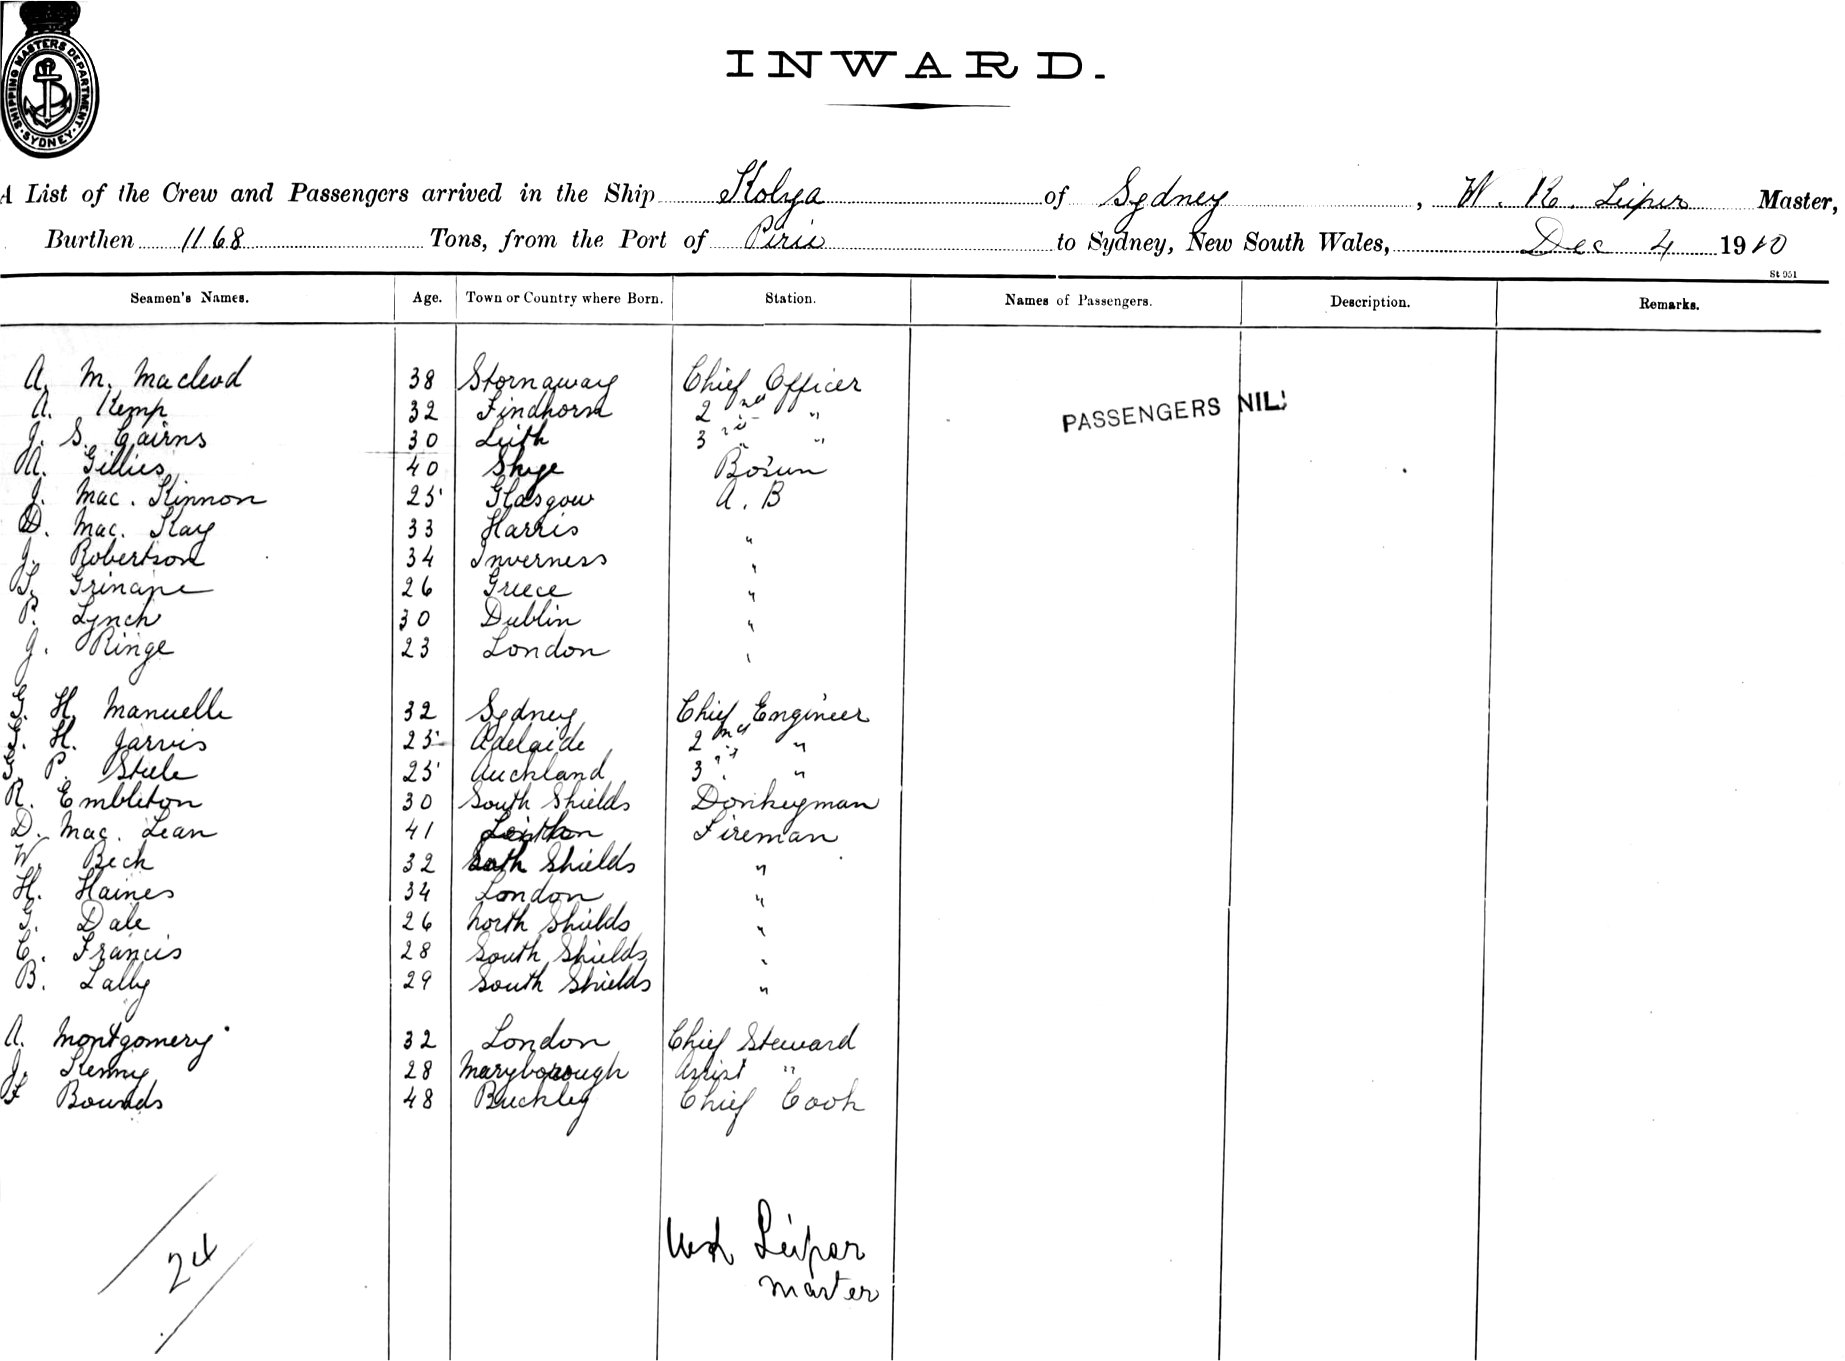 SHIPPING MASTERS DEPARTMENT
SYDNEY
INWARD.
A List of the Crew and Passengers arrived in the Ship Kolya of Sydney, W. R. Leiper Master,
Burthen 1168 Tons, from the Port of Pirie to Sydney, New South Wales, Dec 4 1910
St 951
Seamen's Names. Age. Town or Country where Born. Station. Names of Passengers. Description. Remarks.
A. M. Macleod 38 Stornaway Chief Officer
A. Kemp 32 Findhorn 2nd "
PASSENGERS NIL.
J. S. Cairns 30 Leith 3rd "
A. Gillies 40 Skye Bosun
J. Mac. Kinnon 25 Glasgow A. B
D. Mac. Kay 33 Harris "
J. Robertson 34 Inverness "
Grinape 26 Greece "
P. Lynch 30 Dublin "
J. Ringe 23 London "
G. H. Manuelle 32 Sydney Chief Engineer
H. Jarvis 25 Adelaide 2nd "
P. Steele 25 Auckland 3rd "
R. Embleton 30 South Shields Donkeyman
D. Mac. Lean 41 Fireman
W. Beck 32 South Shields "
H. Haines 34 London "
G. Dale 26 North Shields "
C. Francis 28 South Shields "
B. Lally 29 South Shields "
A. Montgomery 32 London Chief Steward
J. Kenny 28 Maryborough Assist "
F Bounds 48 Buckley Chief Cook
24
WR Leiper
Master